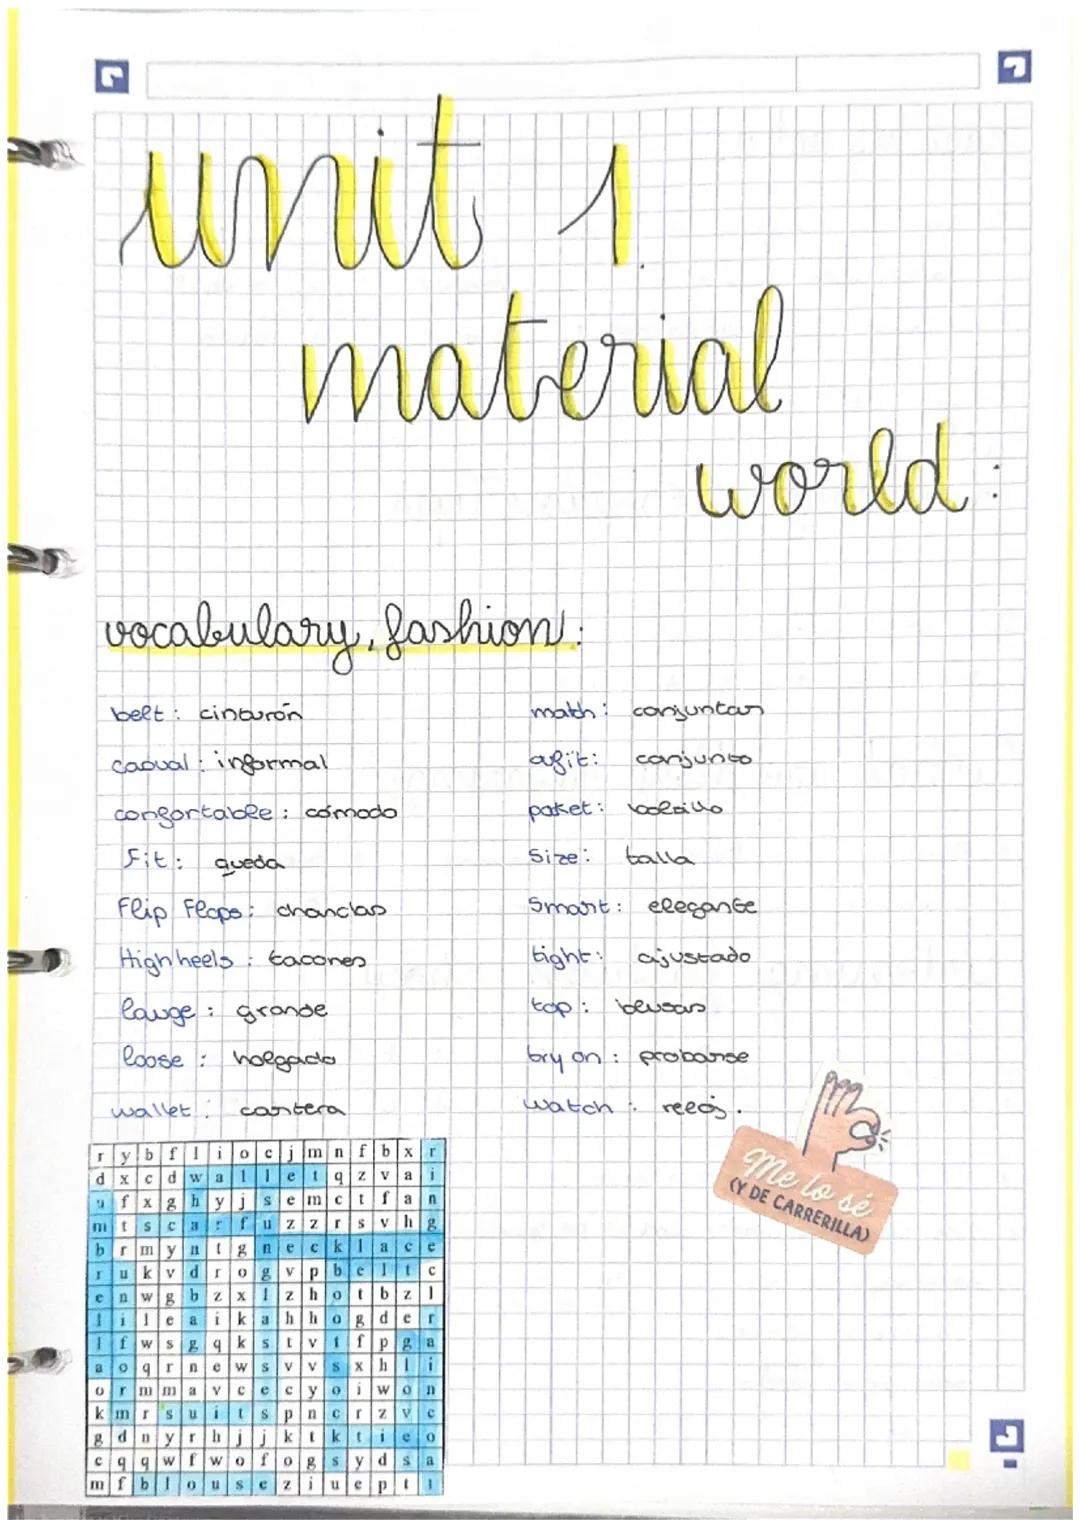 unit 1.
material
world:
vocabulary, fashion:
belt: cinturón
casual: informal
confortable: cómodo
Fit: queda
Flip Flops: chanclas
High heels: tacones
lauge: grande
loose: holgado
wallet: cartera
math: conjuntar
ofit: conjunto
poket: bolsillo
Size: talla
Smart: elegante
tight: ajustado
top: blusas
try on: probarse
watch: reloj.
Me lo sé
(Y DE CARRERILLA)
r y b f l i o c j m n f b x r
d x c d w a l l e t q z v a i
u f x g h y j s e m c t f a n
m t s c a r f u z z r s v h g
b r m y n t g n e c k l a c e
r u k v d r o g v p b e l t c
e n w g b z x l z h o t b z l
l i l e a i k a h h o g d e r
l f w s g q k s t v t f p g a
a o q r n e w s v v s x h l i
o r m m a v c e c y o i w o n
k m r s u i t s p n c r z v c
g d n y r h j j k t k t i e o
c q q w f w o f o g s y d s a
m f b l o u s e z i u e p t t